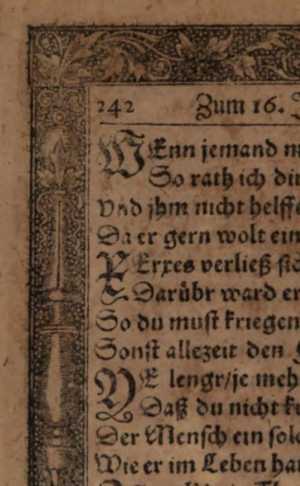 242 Zum 16.
WEnn jemand
So rath ich
Vnd jhm nicht
Da er gern wolt
XErxes verließ
Darübr ward
So du must kriegen
Sonst allezeit den
JE lengr/je meh
Daß du nicht
Der Mensch ein
Wie er im Leben